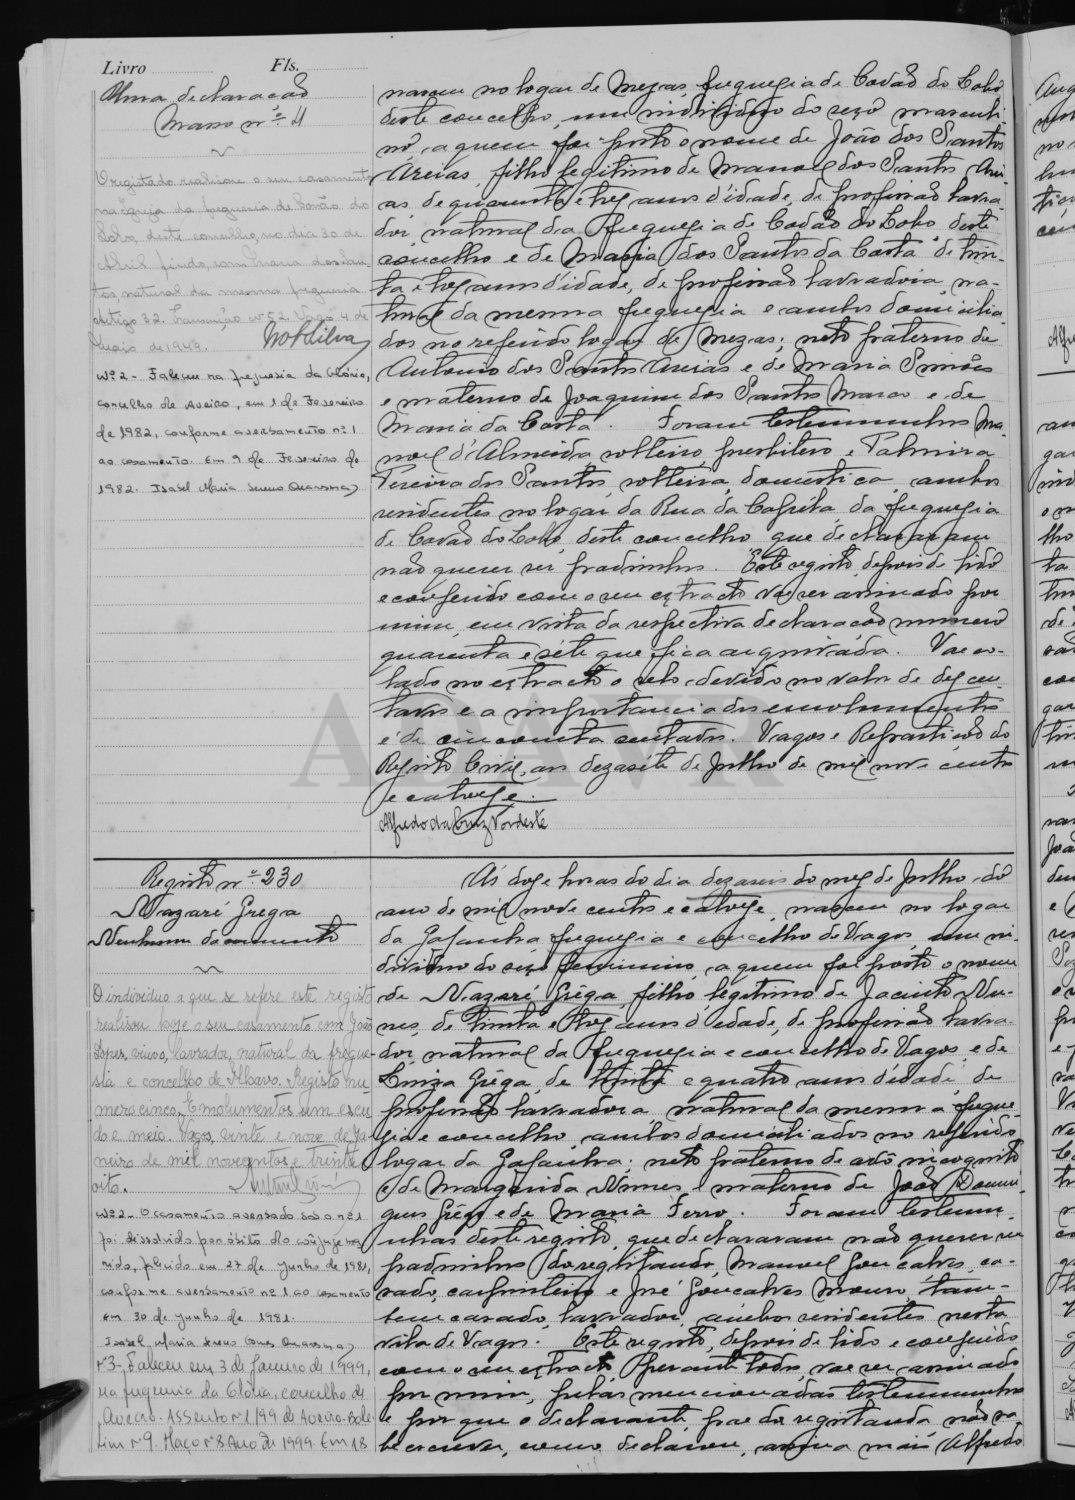 Livro Fls.
Uma declaração
Masso nº 4
O registado realisou o seu casamento
na Igreja da freguesia de Covão do
Lobo, deste concelho, no dia 30 de
Abril findo, com Maria dos San-
tos, natural da mesma freguesia.
Artigo 32. Transcrição nº 52. Vagos 4 de
Maio de 1943.
Nº 2 - Faleceu na freguesia da Glória,
concelho de Aveiro, em 1 de Fevereiro
de 1982, conforme averbamento nº 1
ao casamento. Em 9 de Fevereiro de
1982. Isabel Maria
nasceu no logar de Mezas freguesia de Covão do Lobo
deste concelho, um individuo do sexo masculi-
no, a quem foi posto o nome de João dos Santos
Areias, filho legitimo de Manoel dos Santos Arei-
as, de quarenta e tres anos d'idade, de profissão lavra-
dor, natural da freguesia de Covão do Lobo deste
concelho e de Maria dos Santos da Costa de trin-
ta e tres anos d'idade, de profissão lavradora, na-
tural da mesma freguesia e ambos domicilia-
dos no referido logar de Mezas; neto paterno de
Antonio dos Santos Areias e de Maria Simões
e materno de Joaquim dos Santos e de
Maria da Costa. Foram testemunhas Ma-
noel d'Almeida, solteiro, presbitero e Palmira
Pereira dos Santos, solteira, domestica, ambos
residentes no logar da Rua da Capéla, da freguesia
de Covão do Lobo, deste concelho que declararam
não querer ser padrinhos. Este registo, depois de lido
e conferido com o seu extracto vae ser assinado por
mim, em vista da respectiva declaração numero
quarenta e séte que fica arquivada. Vae co-
lado no extracto o selo devido no valor de dez cen-
tavos e a importancia dos emolumentos
é de cincoenta centavos. Vagos e Repartição do
Registo Civil, aos dezasete de Julho de mil nove centos
e catorze.
Alfredo da Cruz Nordeste
Registo nº 230
Nazaré Grega
Nenhum documento
O individuo a que se refere este registo
realisou hoje o seu casamento com João
Lopes, viuvo, lavrador, natural da fregue-
sia e concelho de Ilhavo. Registo nu-
mero cinco. Emolumentos um escu-
do e meio. Vagos, vinte e nove de Ja-
neiro de mil novecentos e trinta e
oito.
Nº 2 - O casamento averbado sob o nº 1
foi dissolvido por óbito do cônjuge ma-
rido, falecido em 27 de Junho de 1981,
conforme averbamento nº 1 ao casamento
em 30 de Junho de 1981.
Isabel Maria
nº 3 - Faleceu em 3 de Janeiro de 1999,
na freguesia da Glória, concelho de
Aveiro. Assento nº 1/99 de Aveiro. Bole-
tim nº 9. Maço nº 8 Ano de 1999. Em 18
Ás doze horas do dia dezaseis do mez de Julho do
ano de mil nove centos e catorze, nasceu no logar
da Gafanha, freguesia e concelho de Vagos, um in-
dividuo do sexo feminino, a quem foi posto o nome
de Nazaré Gréga, filho legitimo de Jacinto Nu-
nes, de trinta e tres anos d'edade, de profissão lavra-
dor, natural da freguesia e concelho de Vagos, e de
Luiza Gréga, de trinta e quatro anos d'idade, de
profissão lavradora natural da mesma fregue-
sia e concelho, ambos domiciliados no referido
logar da Gafanha; neto paterno de avô incognito
e de Margarida Nunes e materno de João Domin-
gues Grego e de Maria Ferro. Foram testemu-
nhas deste registo, que declararam não querer ser
padrinhos do registando, Manuel Gonçalves, ca-
sado, carpinteiro e José Gonçalves Mouro, tam-
bem casado, lavrador, ambos residentes nesta
vila de Vagos. Este registo, depois de lido e conferido
com o seu extracto, perante todos, vae ser assinado
por mim, pelas mencionadas testemunhas
e por que o declarante, pae da registanda, não sa-
be escrever, como declarou, assina mais Alfredo